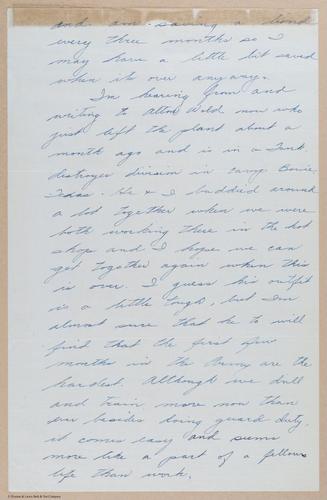 and am saving a bond
every three months so I
may have a little bit saved
when its over anyway.
Im hearing from and
writing to Alton Wold now who
just left the plant about a
month ago and is in a Tank
destroyer division in Camp Bowie,
Texas. He & I buddied around
a lot together when we were
both working there in the hot
shop and I hope we can
get together again when this
is over. I guess his outfit
is a little tough, but Im
almost sure that he to will
find that the first few
months in the Army are the
hardest. Although we drill
and train more now than
ever besides doing guard duty,
it comes easy and seems
more like a part of a fellows
life than work.